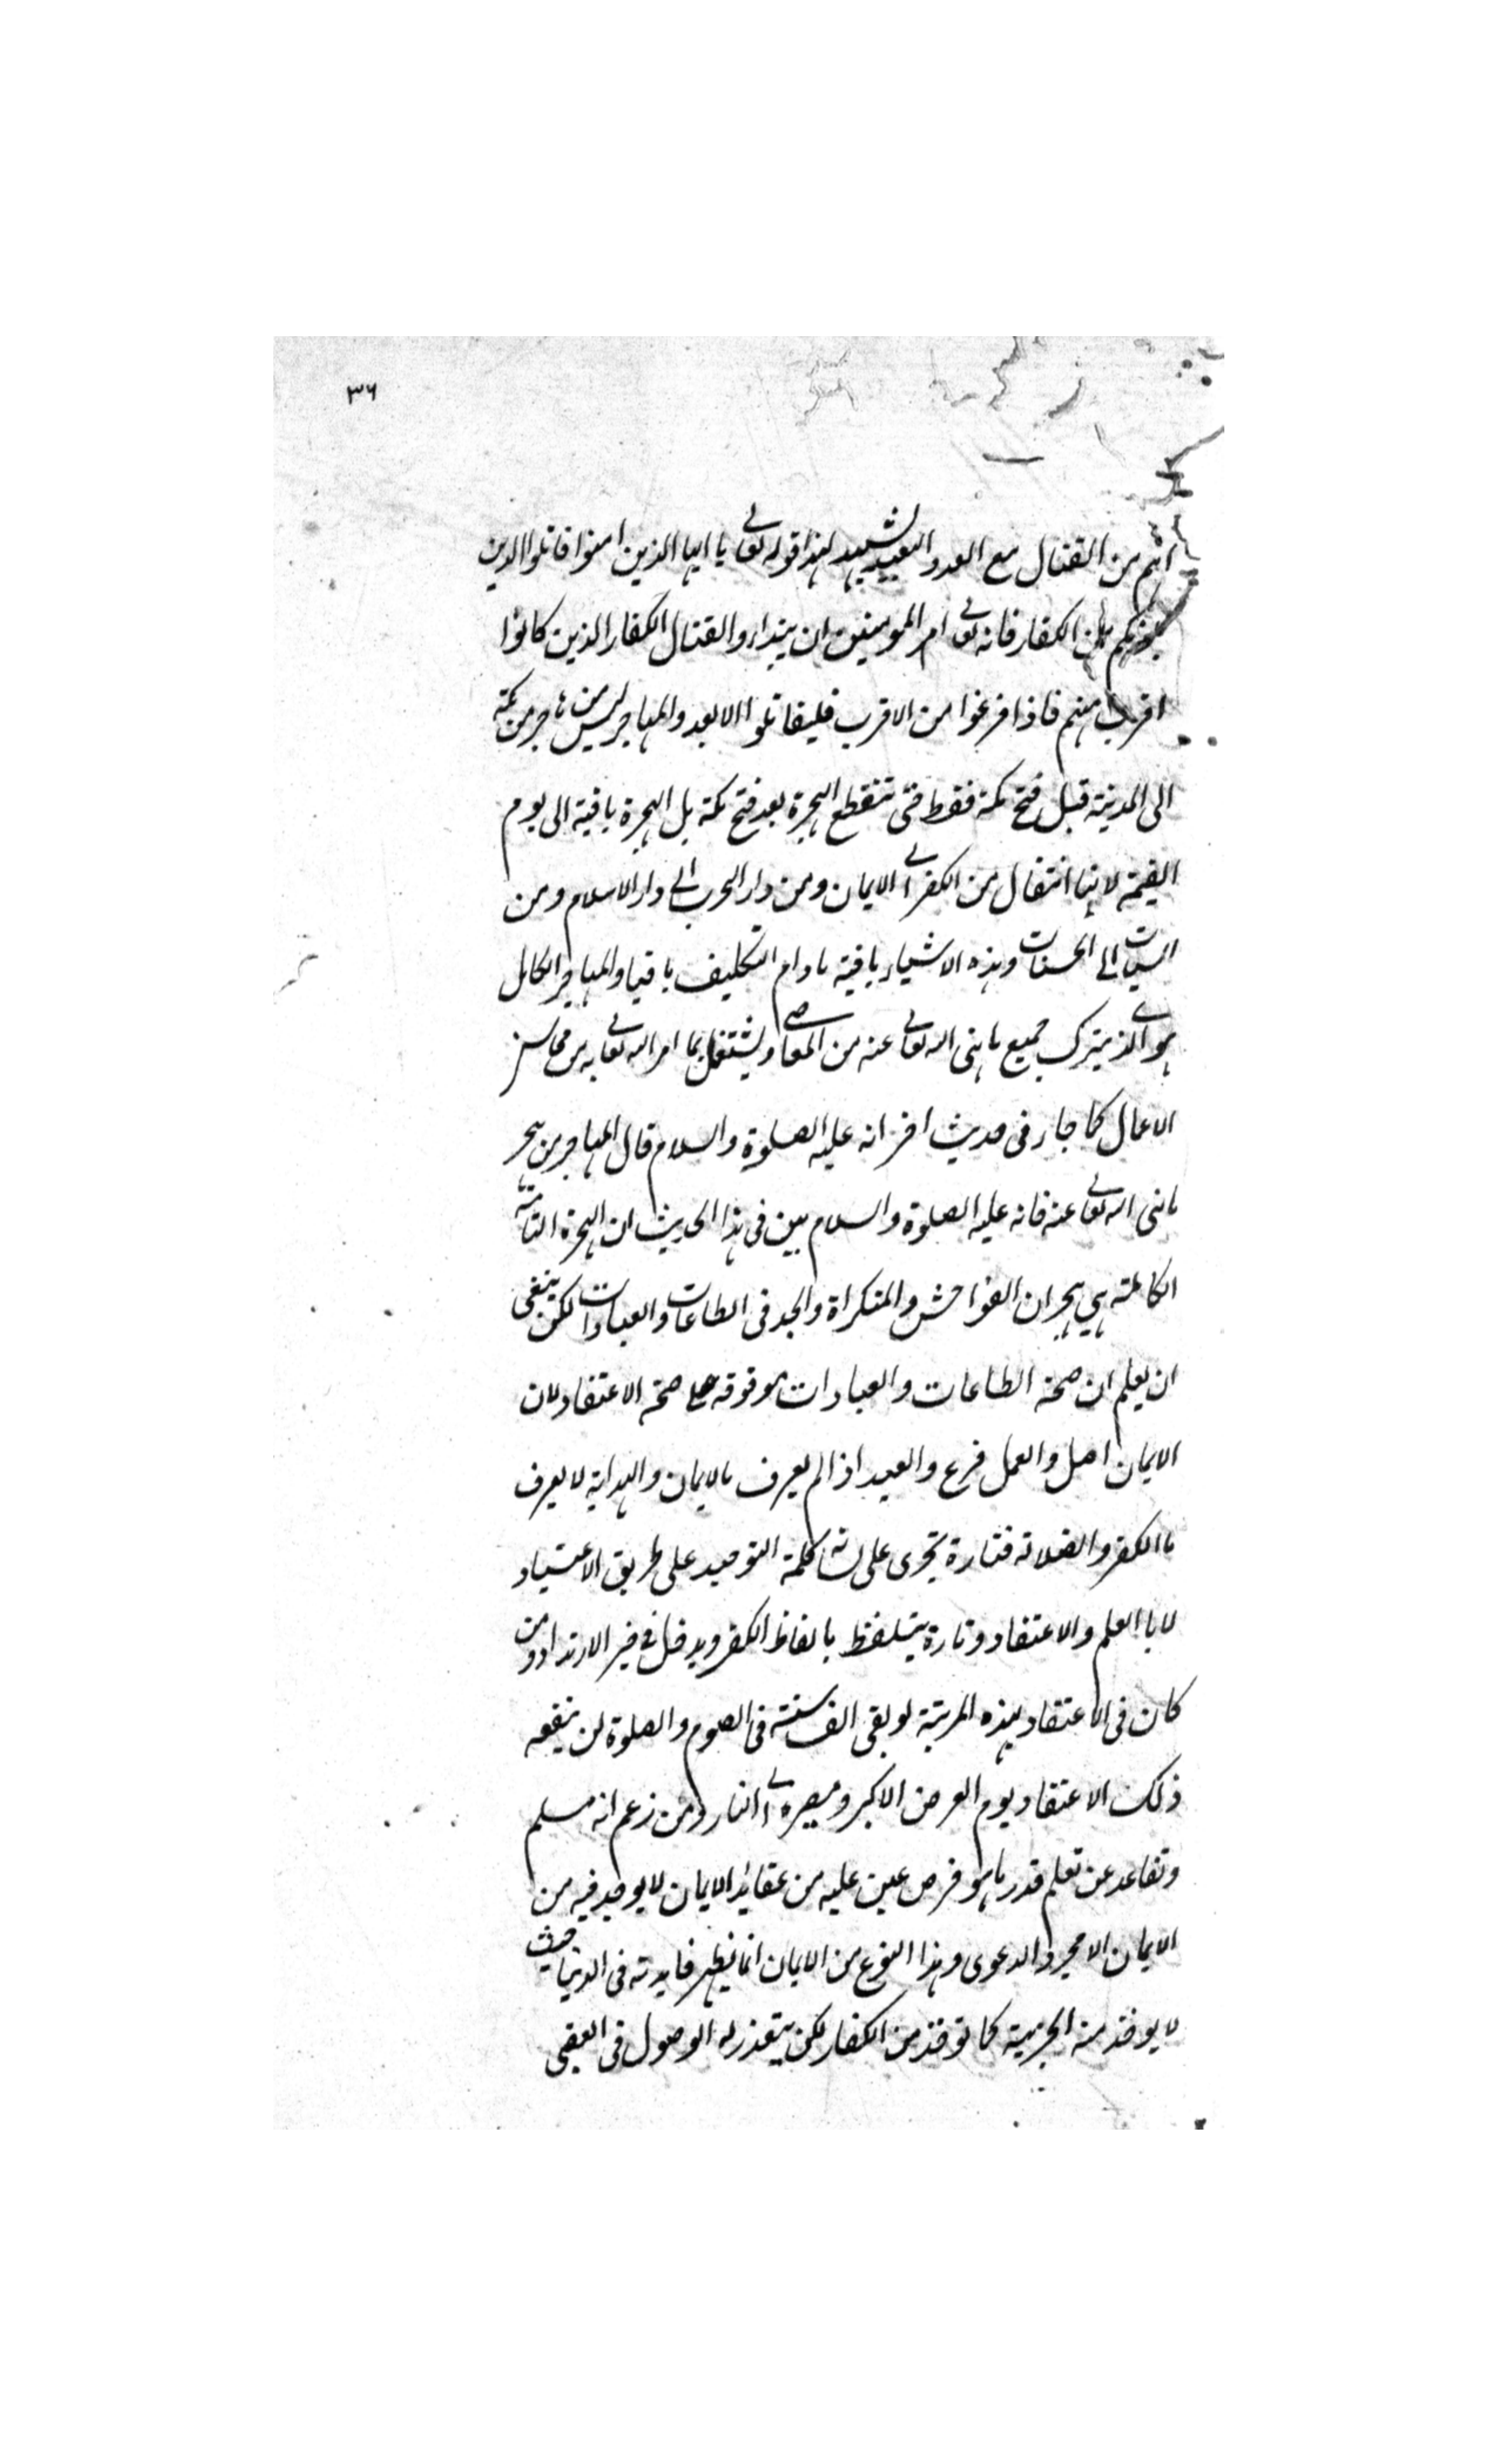 ٣٦
اتم من القتال مع العدو البعيد يشهد لهذا قوله تعالى يا ايها الذين امنوا قاتلوا الذين
يلونكم من الكفار فانه تعالى امر المومنين ان يبتداروا القتال الكفار الذين كانوا
اقرب منهم فاذا فرغوا من الاقرب فليقاتلوا الابعد والمهاجر ليس من هاجر من مكة
الى المدينة قبل فتح مكة فقط حتى تنقطع الهجرة بعد فتح مكة بل الهجرة باقية الى يوم
القيمة لانها انتقال من الكفر الى الايمان ومن دار الحرب الى دار الاسلام ومن
السيات الى الحسنات وهذه الاشياء باقية مادام التكليف باقيا والمهاجر الكامل
هو الذي يترك جميع ما نهى الله تعالى عنه من المعاصي ويشتغل بما امر الله تعالى به من محاسن
الاعمال كما جاء فى حديث اخر انه عليه الصلوة والسلام قال المهاجر من هجر
ما نهى الله تعالى عنه فانه عليه الصلوة والسلام بين فى هذا الحديث ان الهجرة التامة
الكاملة هي هجران الفواحش والمنكراة والجد فى الطاعات والعبادات لكن ينبغى
ان يعلم ان صحة الطاعات والعبادات موقوفة على صحة الاعتقاد لان
الايمان اصل والعمل فرع والعبد اذا لم يعرف ما الايمان والهداية لا يعرف
ما الكفر والضلالة فتارة يجرى على لسانه كلمة التوحيد على طريق الاعتياد
لا بالعلم والاعتقاد وتارة يتلفظ بالفاظ الكفر ويدخل في خير الارتداد ومن
كان فى الاعتقاد بهذه المرتبة لو بقى الف سنة فى الصوم والصلوة لن ينفعه
ذلك الاعتقاد يوم العرض الاكبر ومصيره الى النار ومن زعم انه مسلم
وتقاعد عن تعلم قدر ما هو فرض عين عليه من عقائد الايمان لا يوجد فيه من
الايمان الا مجرد الدعوى وهذا النوع من الايمان انما يظهر فايدته فى الدنيا حيث
لا يوخذ منه الجزية كما توخذ من الكفار لكن يتعذر له الوصول فى العقبى